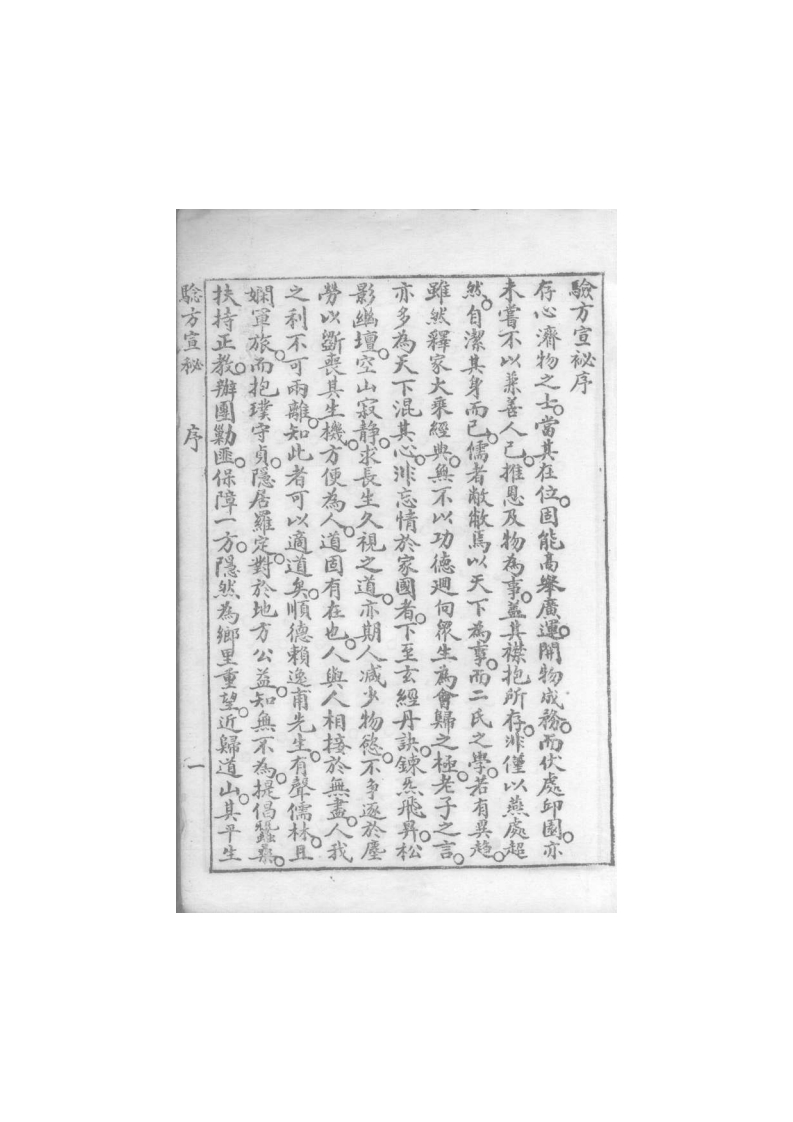 驗方宣祕序
存心濟物之士。當其在位。固能高舉廣運。開物成務。而伏處邱園。亦
未嘗不以兼善人己。推恩及物為事。蓋其襟抱所存。非僅以燕處超
然。自潔其身而已。儒者敝敝焉以天下為事。而二氏之學。若有異趨。
雖然釋家大乘經典。無不以功德廻向眾生為會歸之極。老子之言。
亦多為天下混其心。非忘情於家國者。下至玄經丹訣。鍊炁飛昇。松
影幽壇。空山寂靜。求長生久視之道。亦期人減少物慾。不爭逐於塵
勞以斵喪其生機。方便為人。道固有在也。人與人相接於無盡。人我
之利不可兩離。知此者可以適道矣。順德賴逸甫先生。有聲儒林。且
嫻軍旅。而抱璞守貞。隱居羅定。對於地方公益。知無不為。提倡蠶桑。
扶持正教。辦團勦匪。保障一方。隱然為鄉里重望。近歸道山。其平生
驗方宣祕 序 一